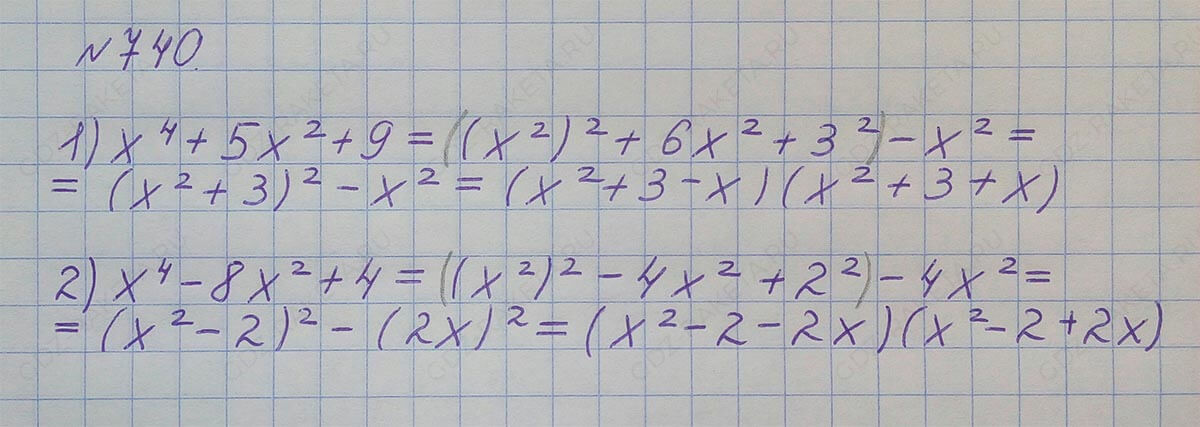 №740.
1) x⁴ + 5x² + 9 = ((x²)² + 6x² + 3²) - x² =
= (x² + 3)² - x² = (x² + 3 - x)(x² + 3 + x)
2) x⁴ - 8x² + 4 = ((x²)² - 4x² + 2²) - 4x² =
= (x² - 2)² - (2x)² = (x² - 2 - 2x)(x² - 2 + 2x)